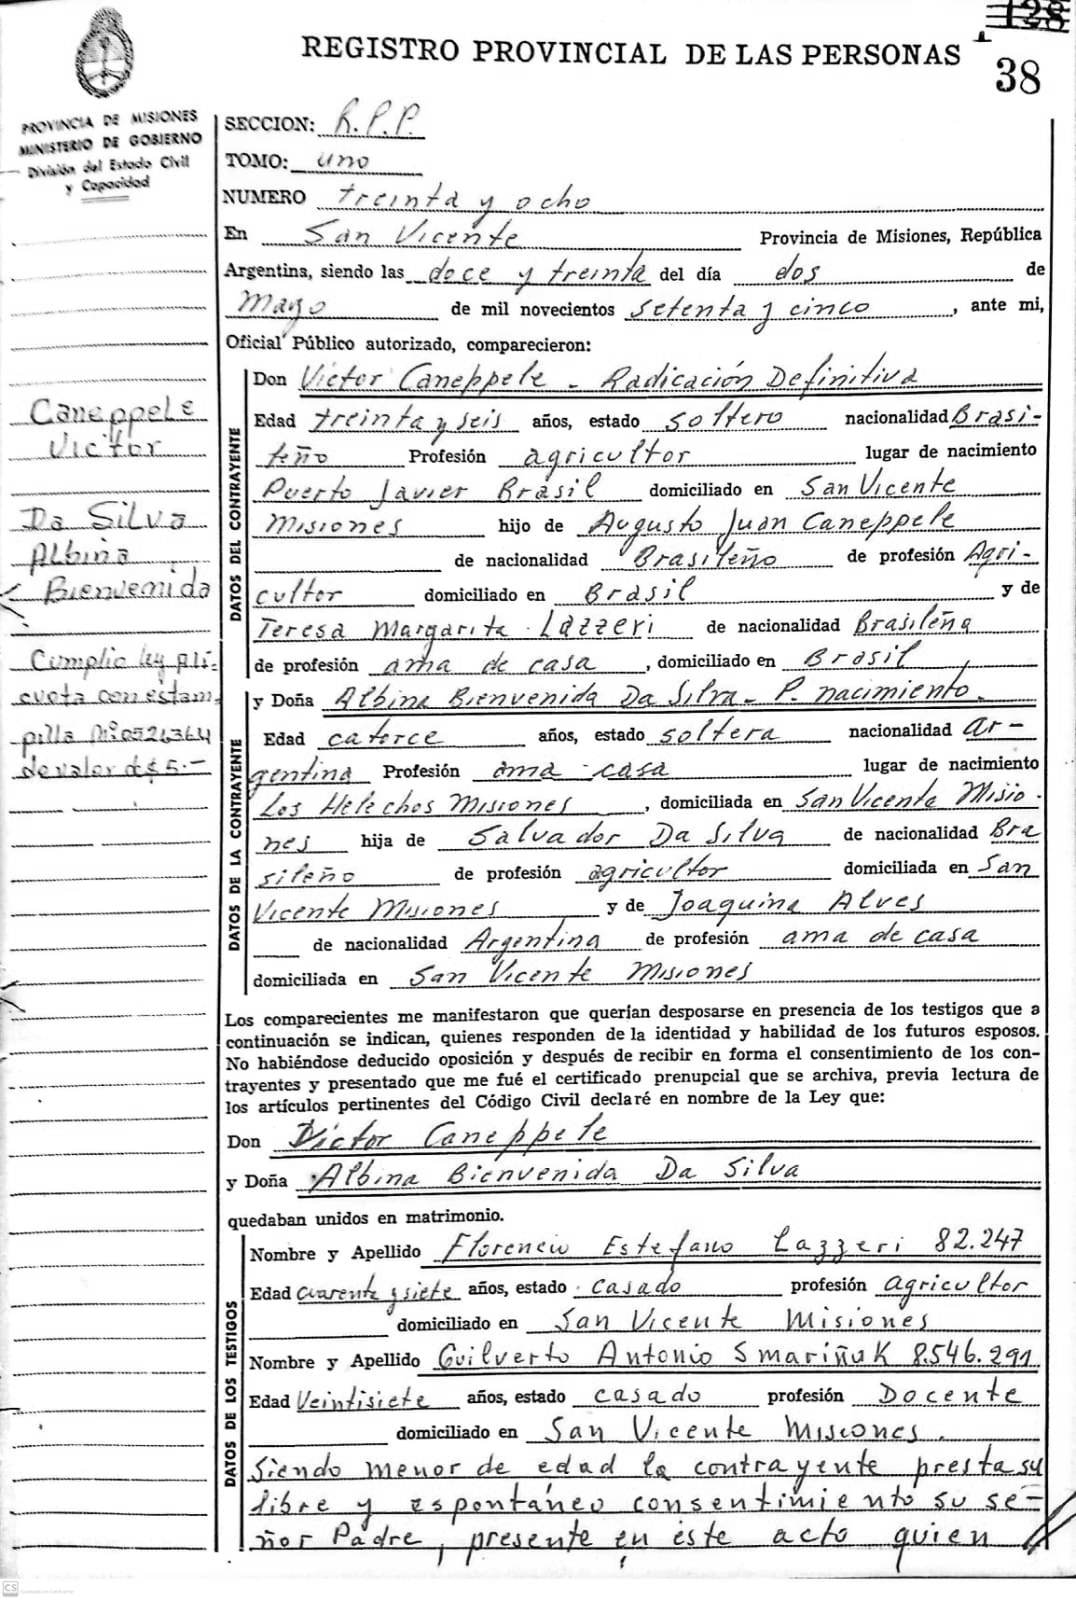 128
REGISTRO PROVINCIAL DE LAS PERSONAS
38
PROVINCIA DE MISIONES
MINISTERIO DE GOBIERNO
División del Estado Civil
y Capacidad
Caneppele
Victor
Da Silva
Albina
Bienvenida
Cumplio ley ali-
cuota con estam
pilla Nº 0526364
de valor de $ 5.-
SECCION: R.P.P.
TOMO: uno
NUMERO treinta y ocho
En San Vicente Provincia de Misiones, República
Argentina, siendo las doce y treinta del día dos de
Mayo de mil novecientos setenta y cinco, ante mi,
Oficial Público autorizado, comparecieron:
DATOS DEL CONTRAYENTE
Don Victor Caneppele - Radicación Definitiva
Edad treinta y seis años, estado soltero nacionalidad Brasi-
leño Profesión agricultor lugar de nacimiento
Puerto Javier Brasil domiciliado en San Vicente
Misiones hijo de Augusto Juan Caneppele
de nacionalidad Brasileño de profesión Agri-
cultor domiciliado en Brasil y de
Teresa Margarita Lazzeri de nacionalidad Brasileña
de profesión ama de casa, domiciliado en Brasil
DATOS DE LA CONTRAYENTE
y Doña Albina Bienvenida Da Silva - P. nacimiento.
Edad catorce años, estado soltera nacionalidad Ar-
gentina Profesión ama casa lugar de nacimiento
Los Helechos Misiones, domiciliada en San Vicente Misio-
nes hija de Salvador Da Silva de nacionalidad Bra
sileño de profesión agricultor domiciliada en San
Vicente Misiones y de Joaquina Alves
de nacionalidad Argentina de profesión ama de casa
domiciliada en San Vicente Misiones
Los comparecientes me manifestaron que querían desposarse en presencia de los testigos que a
continuación se indican, quienes responden de la identidad y habilidad de los futuros esposos.
No habiéndose deducido oposición y después de recibir en forma el consentimiento de los con-
trayentes y presentado que me fué el certificado prenupcial que se archiva, previa lectura de
los artículos pertinentes del Código Civil declaré en nombre de la Ley que:
Don Victor Caneppele
y Doña Albina Bienvenida Da Silva
quedaban unidos en matrimonio.
DATOS DE LOS TESTIGOS
Nombre y Apellido Florencio Estefano Lazzeri 82.247
Edad cuarenta y siete años, estado casado profesión agricultor
domiciliado en San Vicente Misiones
Nombre y Apellido Guilverto Antonio Smariñuk 8.546.291
Edad Veintisiete años, estado casado profesión Docente
domiciliado en San Vicente Misiones.
Siendo menor de edad la contrayente presta su
libre y espontáneo consentimiento su se-
ñor Padre, presente en este acto quien
CS